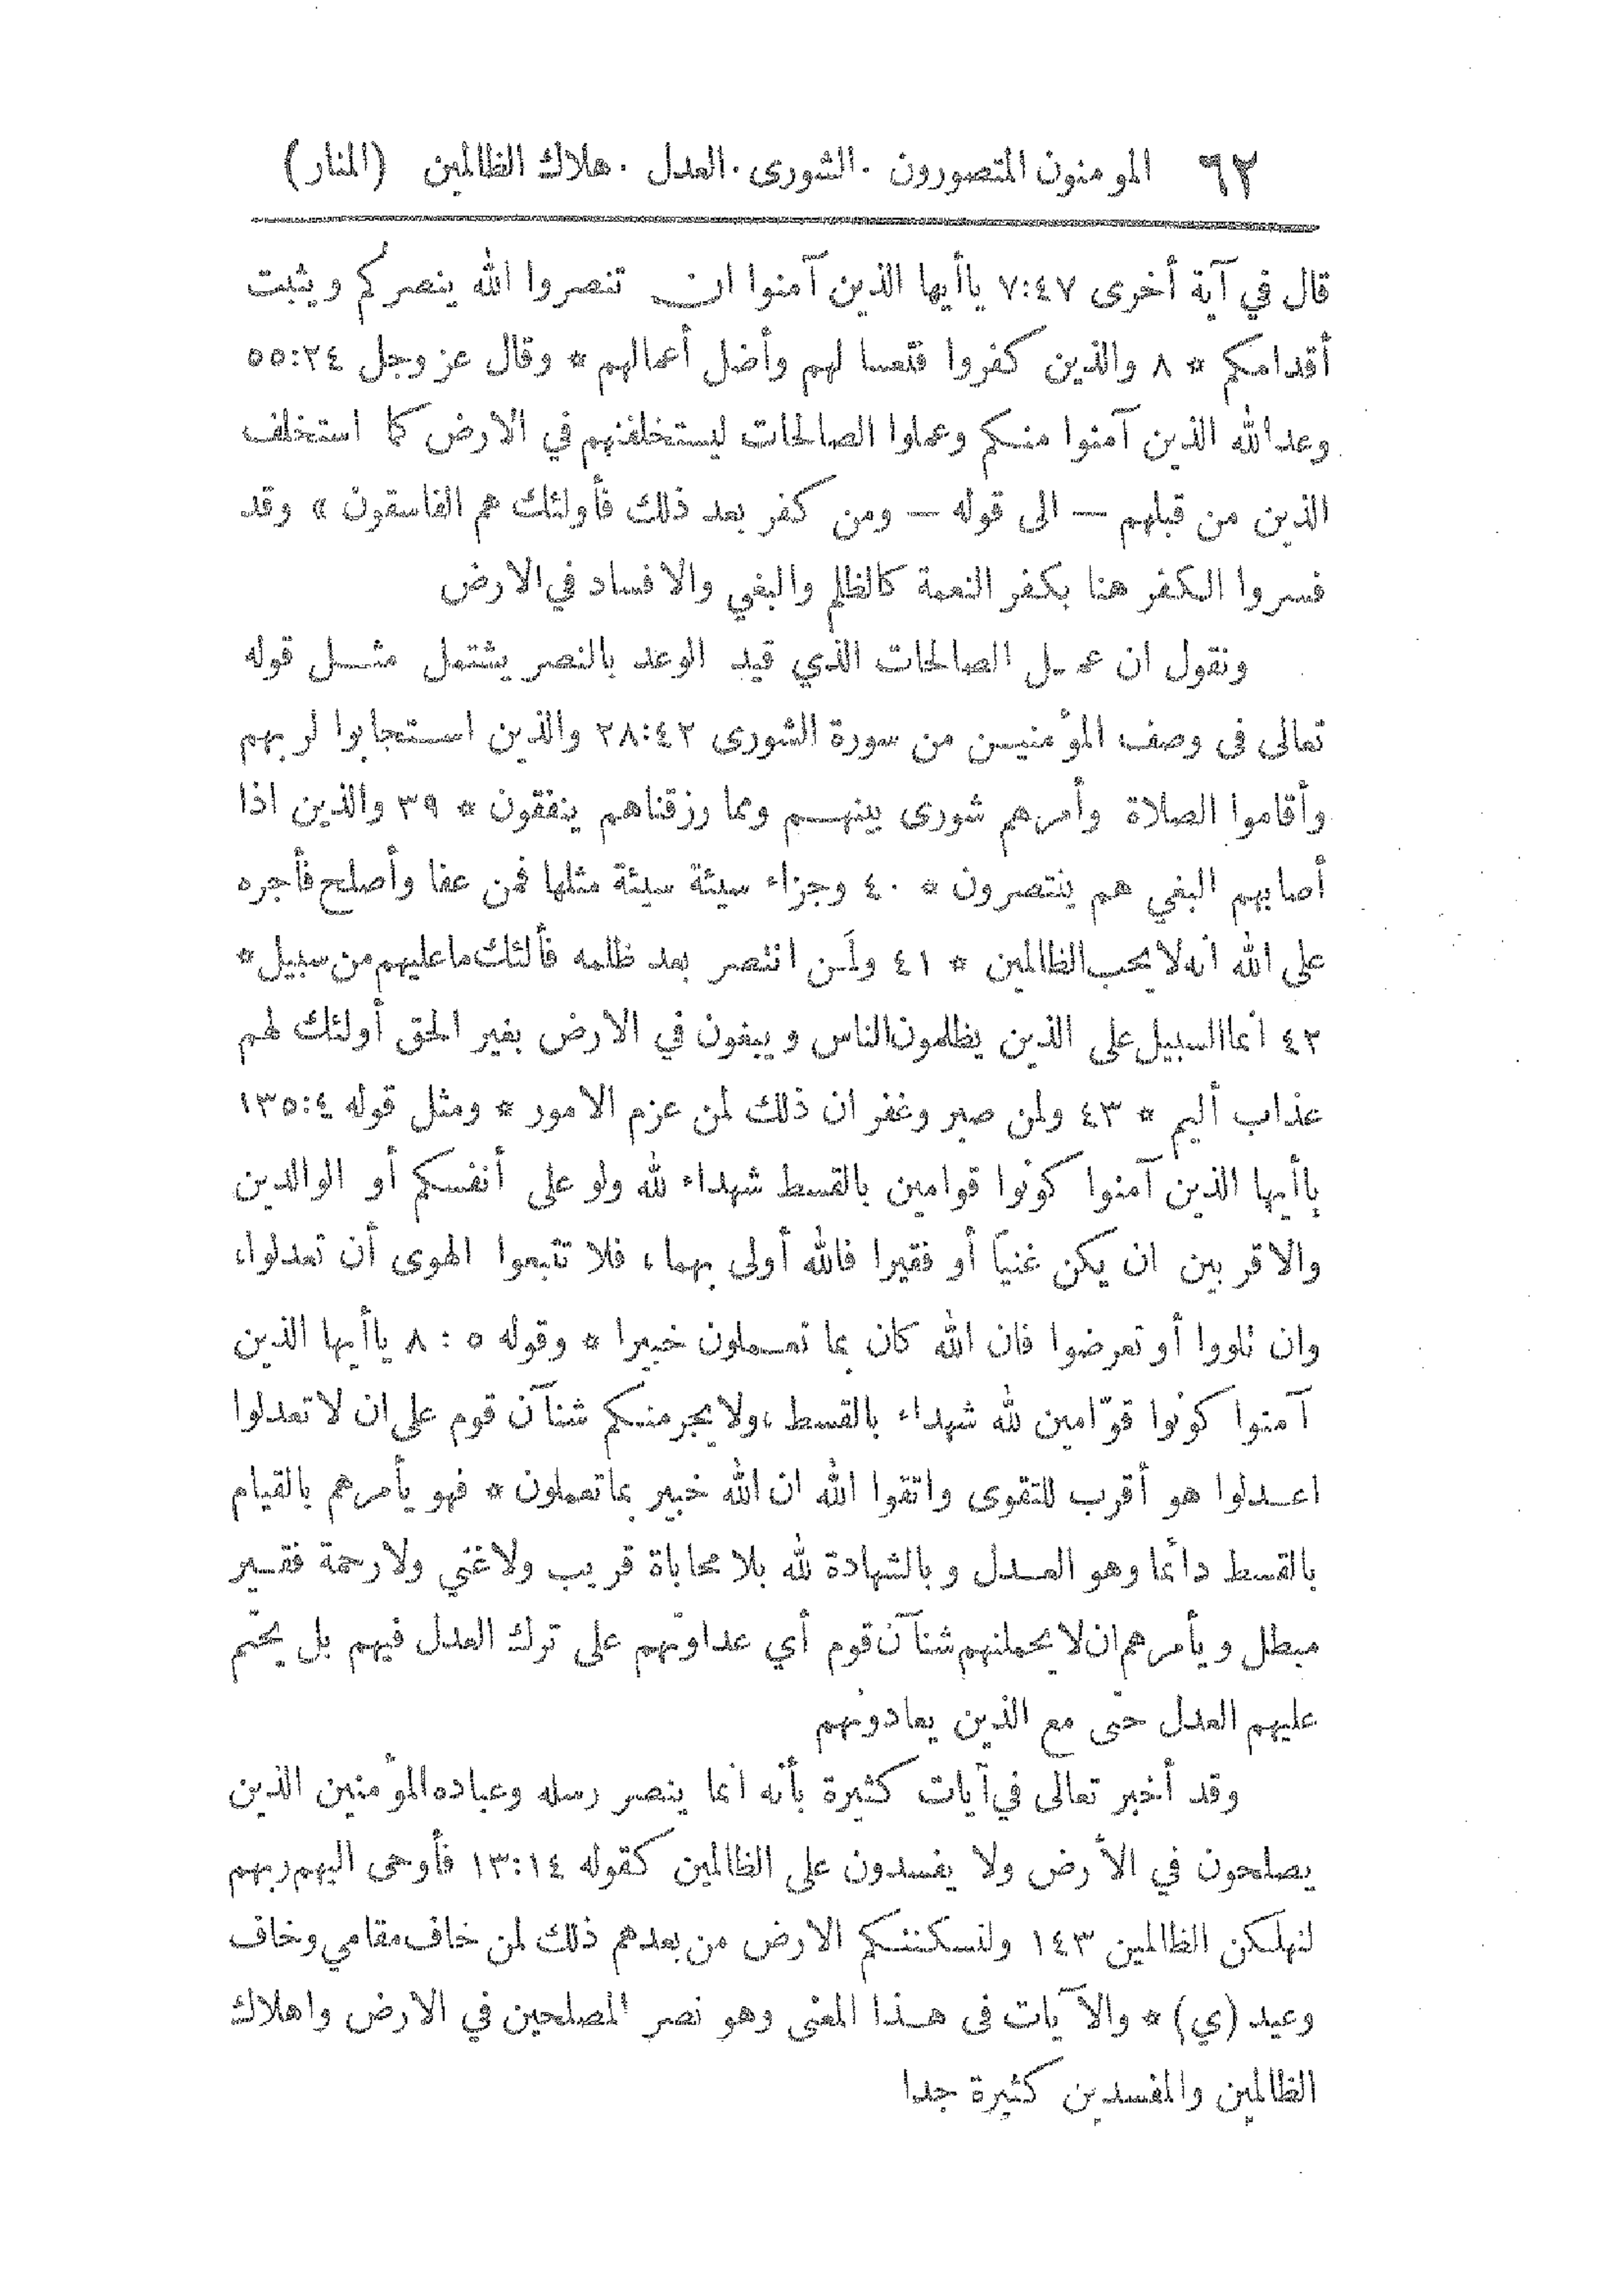 ٩٢ المؤمنون المتصورون . الشورى . العدل . هلاك الظالمين (المنار)
قال في آية أخرى ٧:٤٧ ياأيها الذين آمنوا ان تنصروا الله ينصركم ويثبت
أقدامكم * ٨ والذين كفروا فتعسا لهم وأضل أعمالهم * وقال عز وجل ٥٥:٢٤
وعد الله الذين آمنوا منكم وعملوا الصالحات ليستخلفنهم في الارض كما استخلف
الذين من قبلهم — الى قوله — ومن كفر بعد ذلك فأولئك هم الفاسقون » وقد
فسروا الكفر هنا بكفر النعمة كالظلم والبغي والافساد في الارض
ونقول ان عمل الصالحات الذي قيد الوعد بالنصر يشتمل مثل قوله
تعالى فى وصف المؤمنين من سورة الشورى ٢٨:٤٢ والذين استجابوا لربهم
وأقاموا الصلاة وأمرهم شورى بينهم ومما رزقناهم ينفقون * ٣٩ والذين اذا
أصابهم البغي هم ينتصرون * ٤٠ وجزاء سيئة سيئة مثلها فمن عفا وأصلح فأجره
على الله انه لا يحب الظالمين * ٤١ ولَمن انتصر بعد ظلمه فألئك ما عليهم من سبيل *
٤٢ انما السبيل على الذين يظلمون الناس ويبغون في الارض بغير الحق أولئك لهم
عذاب أليم * ٤٣ ولمن صبر وغفر ان ذلك لمن عزم الامور * ومثل قوله ١٣٥:٤
ياأيها الذين آمنوا كونوا قوامين بالقسط شهداء لله ولو على أنفسكم أو الوالدين
والاقربين ان يكن غنيًا أو فقيرا فالله أولى بهما، فلا تتبعوا الهوى أن تعدلوا،
وان تلووا أو تعرضوا فان الله كان بما تعملون خبيرا * وقوله ٥ : ٨ ياأيها الذين
آمنوا كونوا قوّامين لله شهداء بالقسط ،ولا يجرمنكم شنآن قوم على ان لا تعدلوا
اعدلوا هو أقرب للتقوى واتقوا الله ان الله خبير بما تعملون * فهو يأمرهم بالقيام
بالقسط دائما وهو العدل وبالشهادة لله بلا محاباة قريب ولا غني ولا رحمة فقير
مبطل ويأمرهم ان لا يحملنهم شنآن قوم أي عداوتهم على ترك العدل فيهم بل يحتّم
عليهم العدل حتى مع الذين يعادونهم
وقد أخبر تعالى في آيات كثيرة بأنه انما ينصر رسله وعباده المؤمنين الذين
يصلحون في الأرض ولا يفسدون على الظالمين كقوله ١٣:١٤ فأوحى اليهم ربهم
لنهلكن الظالمين ١٤٣ ولنسكننكم الارض من بعدهم ذلك لمن خاف مقامي وخاف
وعيد (ي) * والآيات فى هذا المعنى وهو نصر المصلحين في الارض واهلاك
الظالمين والمفسدين كثيرة جدا